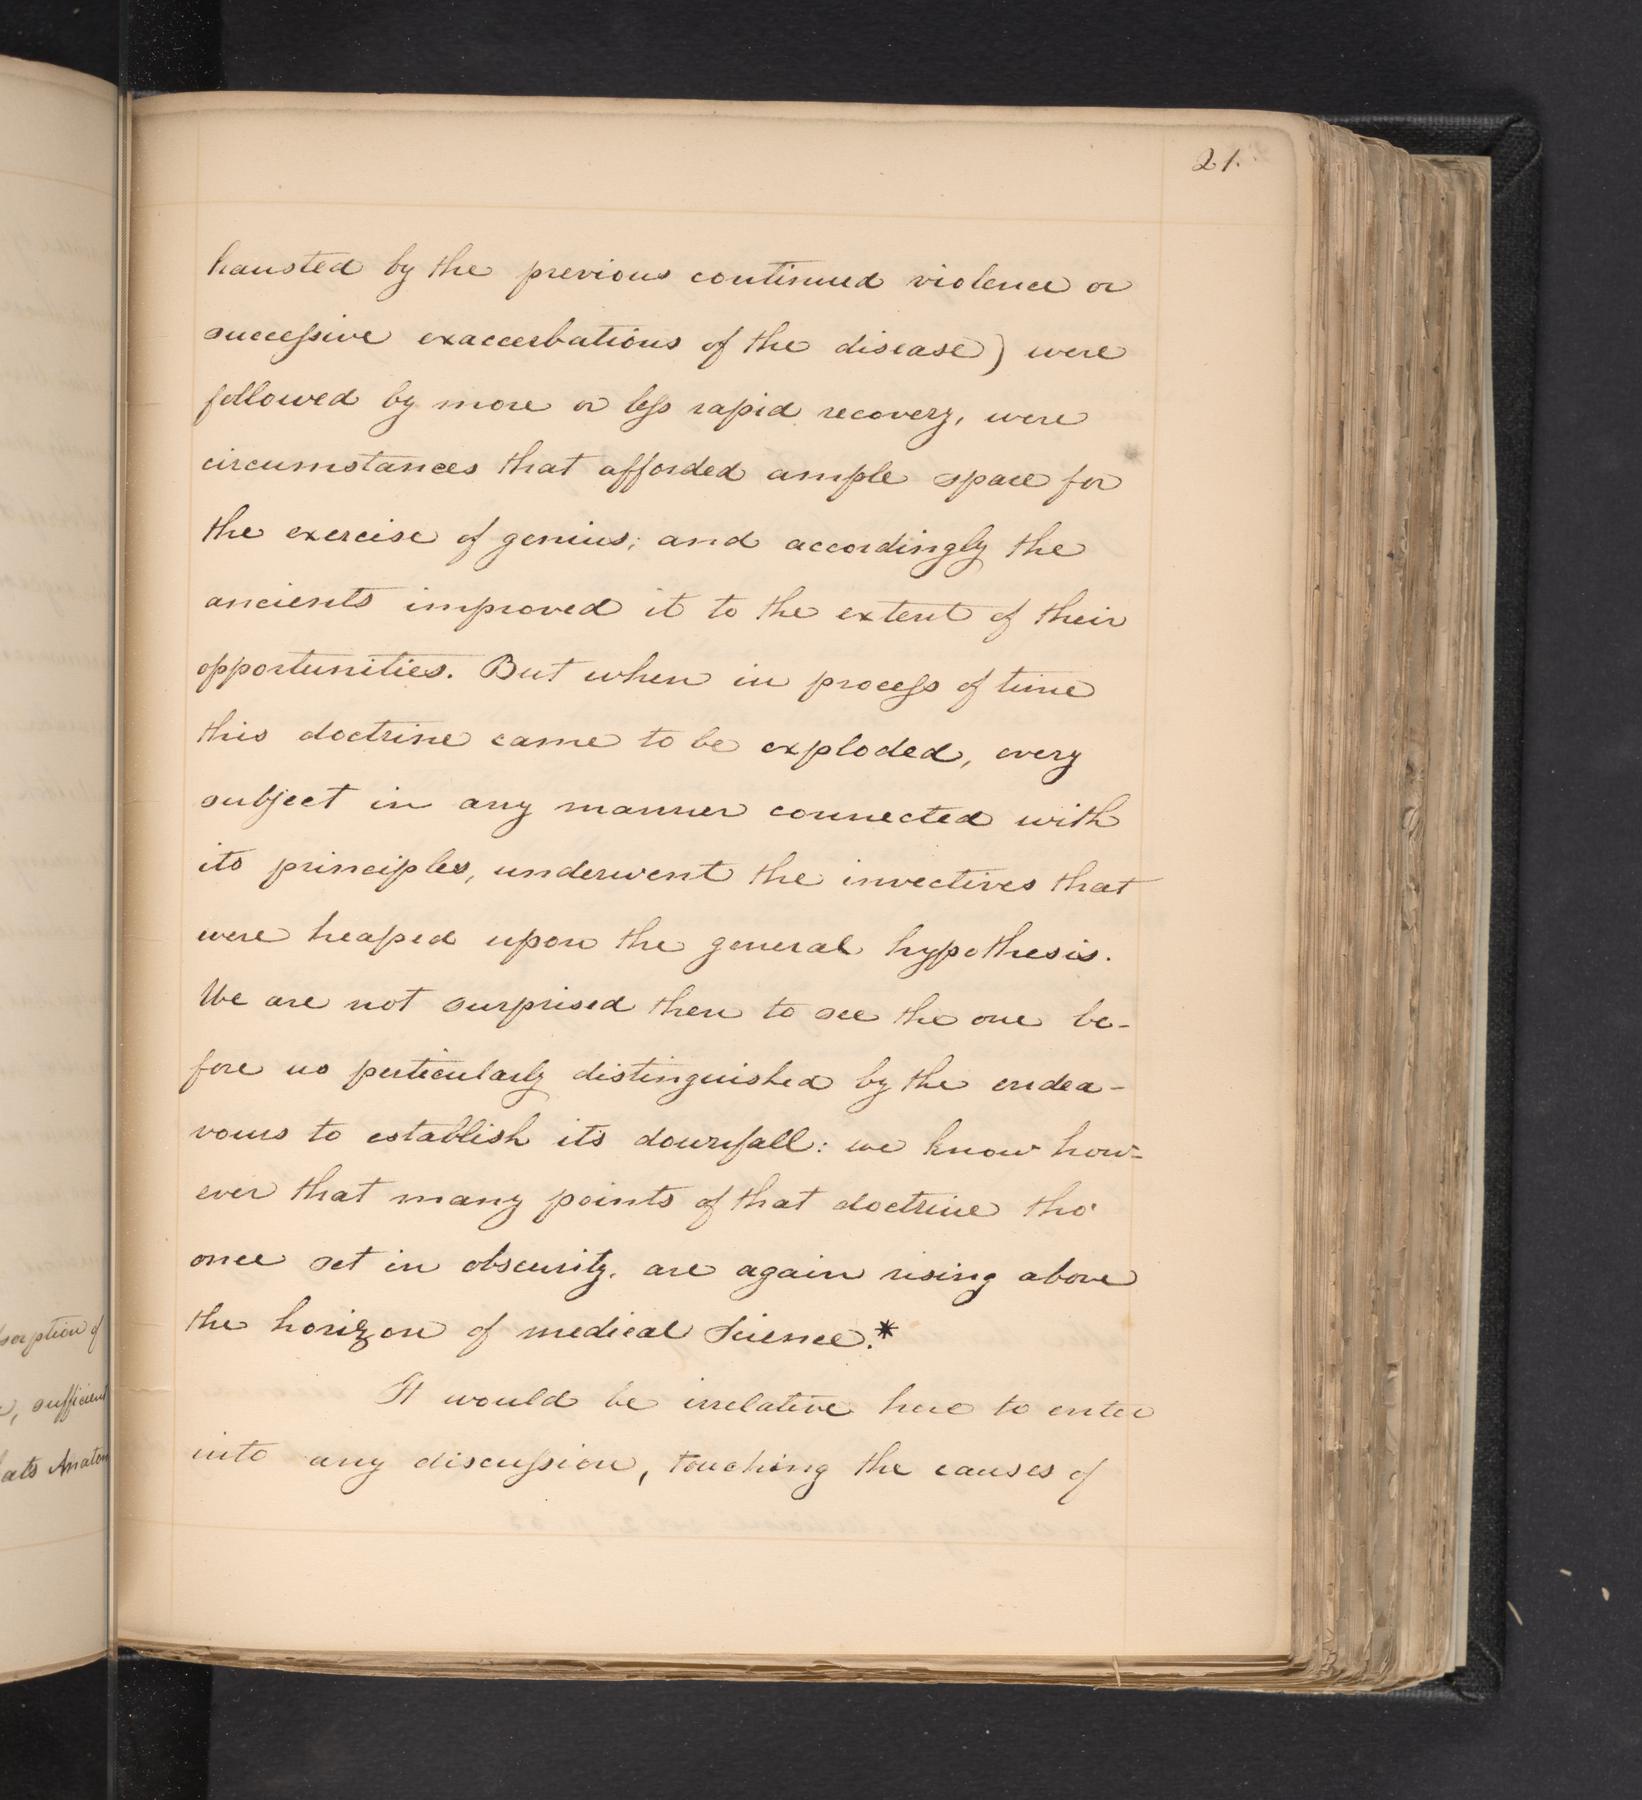 21.
hausted by the previous continued violence or
successive exaccerbations of the disease) were
followed by more or less rapid recovery, were
circumstances that afforded ample space for
the exercise of genius; and accordingly the
ancients improved it to the extent of their
opportunities. But when in process of time
this doctrine came to be exploded, every
subject in any manner connected with
its principles, underwent the invectives that
were heaped upon the general hypothesis.
We are not surprised then to see the one be-
fore us perticularly distinguished by the endea-
vours to establish its downfall: we know how-
ever that many points of that doctrine tho'
once set in obscurity, are again rising above
the horizon of medical Science.*
It would be irrelative here to enter
into any discussion, touching the causes of
sorption of
sufficient
Anatom